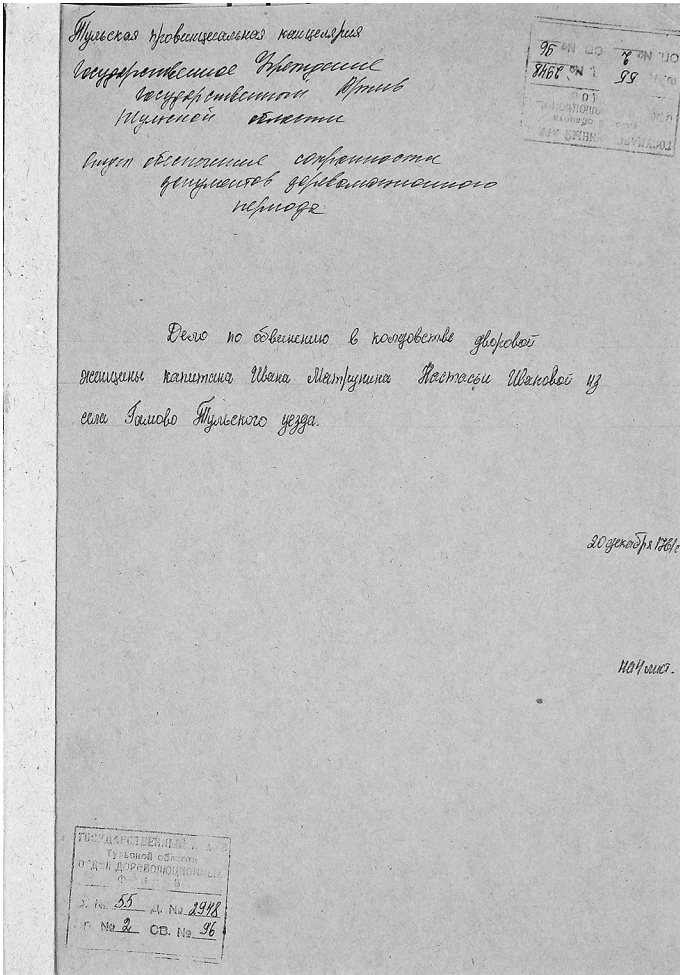 Тульская провинцеальная канцелярия
Государственное Учреждение
Государственный Архив
Тульской области
Отдел обеспечения сохранности
документов дореволюционного
периода
ОП. № 2 СВ. № 96
55 Д. № 2948
Дело по обвинению в колдовстве дворовой
женщины капитана Ивана Матрунина Настасьи Ивановой из
села Гамово Тульского уезда.
20 декабря 1761г
на 4 лист.
ГОСУДАРСТВЕННЫЙ
Тульской области
ОТДЕЛ ДОРЕВОЛЮЦИОННЫХ
№ 55 Д. № 2948
№ 2 СВ. № 96